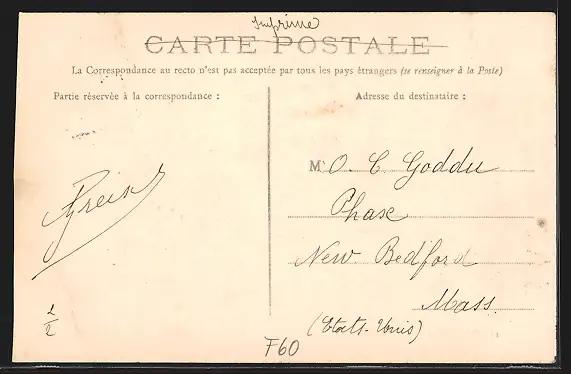 Imprimé
CARTE POSTALE
La Correspondance au recto n'est pas acceptée par tous les pays étrangers (se renseigner à la Poste)
Partie réservée à la correspondance :
Adresse du destinataire :
M O. C Goddu
Phase
New Bedford
Mass.
(Etats-Unis)
F60